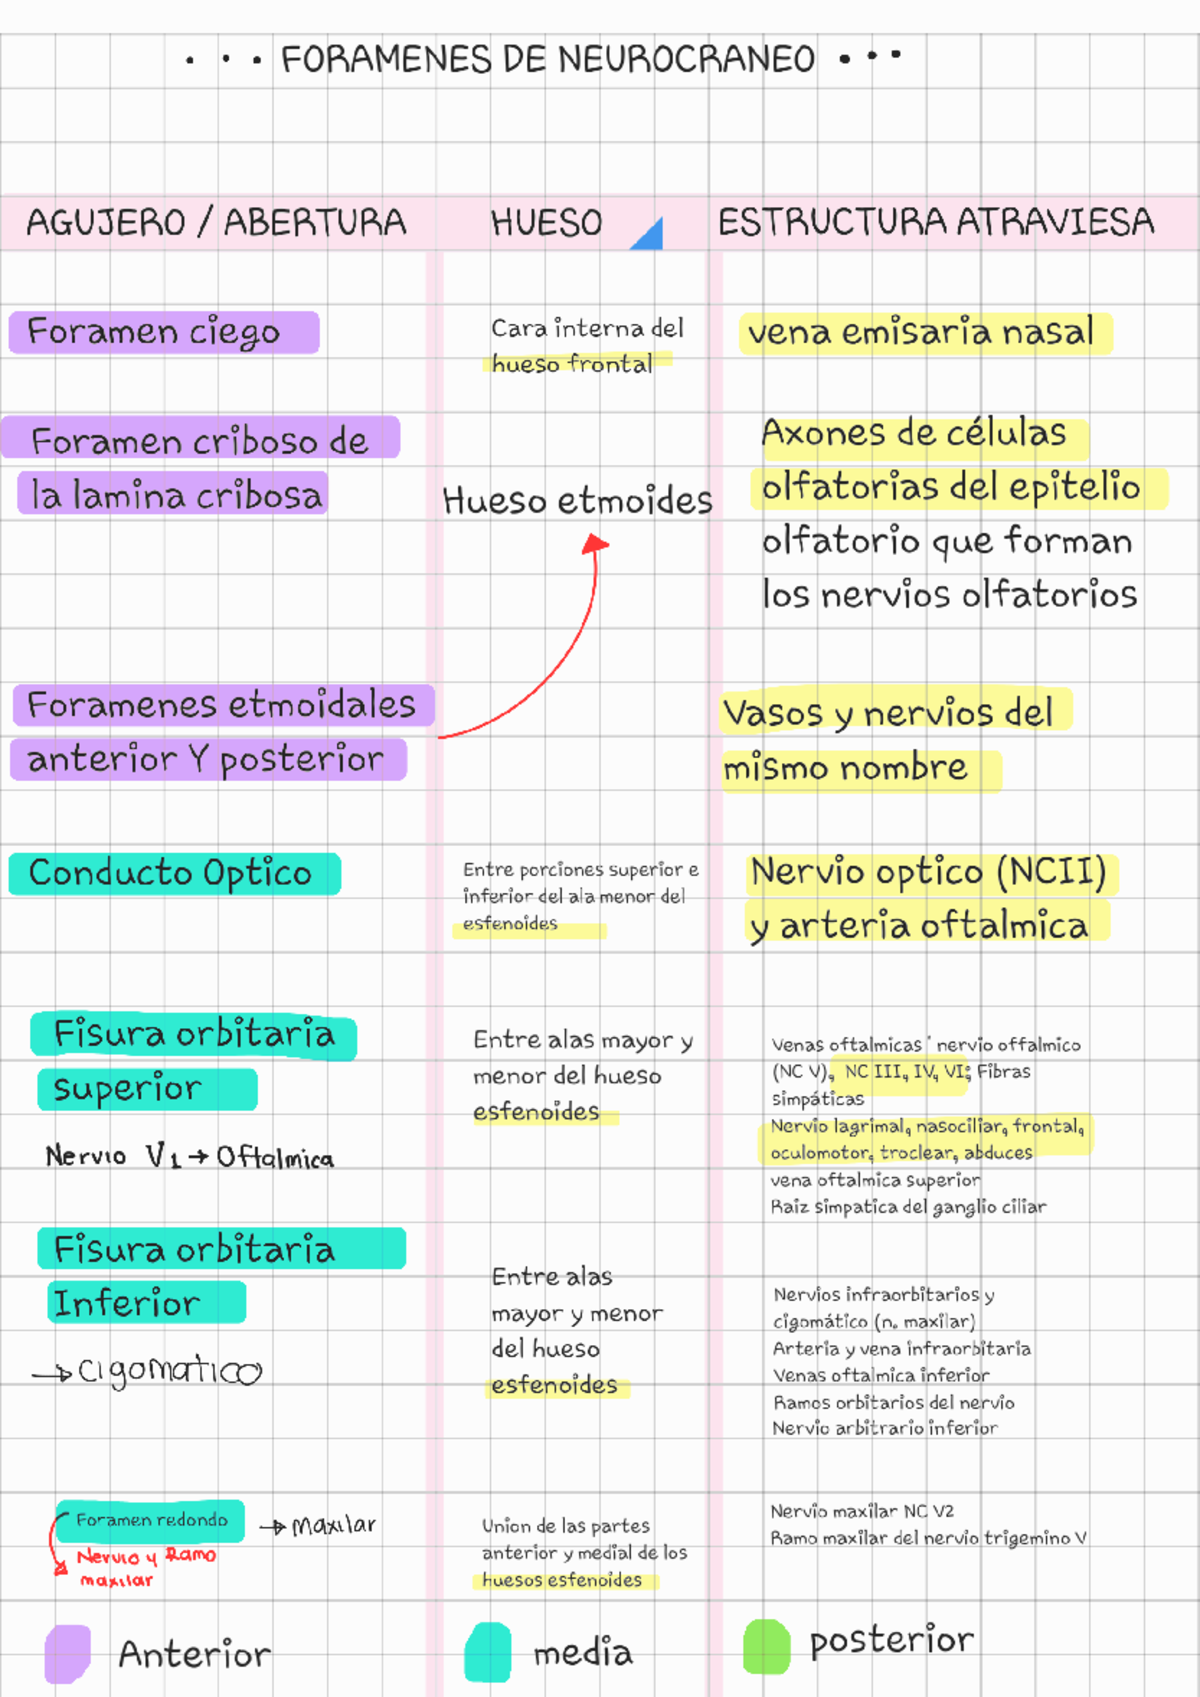 FORAMENES DE NEUROCRANEO
AGUJERO / ABERTURA
HUESO
ESTRUCTURA ATRAVIESA
Foramen ciego
Cara interna del
hueso frontal
vena emisaria nasal
Foramen criboso de
la lamina cribosa
Hueso etmoides
Axones de células
olfatorias del epitelio
olfatorio que forman
los nervios olfatorios
Foramenes etmoidales
anterior Y posterior
Vasos y nervios del
mismo nombre
Conducto Optico
Entre porciones superior e
inferior del ala menor del
esfenoides
Nervio optico (NCII)
y arteria oftalmica
Fisura orbitaria
superior
Nervio V1 → Oftalmica
Entre alas mayor y
menor del hueso
esfenoides
Venas oftalmicas ' nervio offalmico
(NC V), NC III, IV, VI; Fibras
simpáticas
Nervio lagrimal, nasociliar, frontal,
oculomotor, troclear, abduces
vena oftalmica superior
Raiz simpatica del ganglio ciliar
Fisura orbitaria
Inferior
→ cigomatico
Entre alas
mayor y menor
del hueso
esfenoides
Nervios infraorbitarios y
cigomático (n. maxilar)
Arteria y vena infraorbitaria
Venas oftalmica inferior
Ramos orbitarios del nervio
Nervio arbitrario inferior
Foramen redondo → Maxilar
Nervio y Ramo
maxilar
Union de las partes
anterior y medial de los
huesos esfenoides
Nervio maxilar NC V2
Ramo maxilar del nervio trigemino V
Anterior
media
posterior